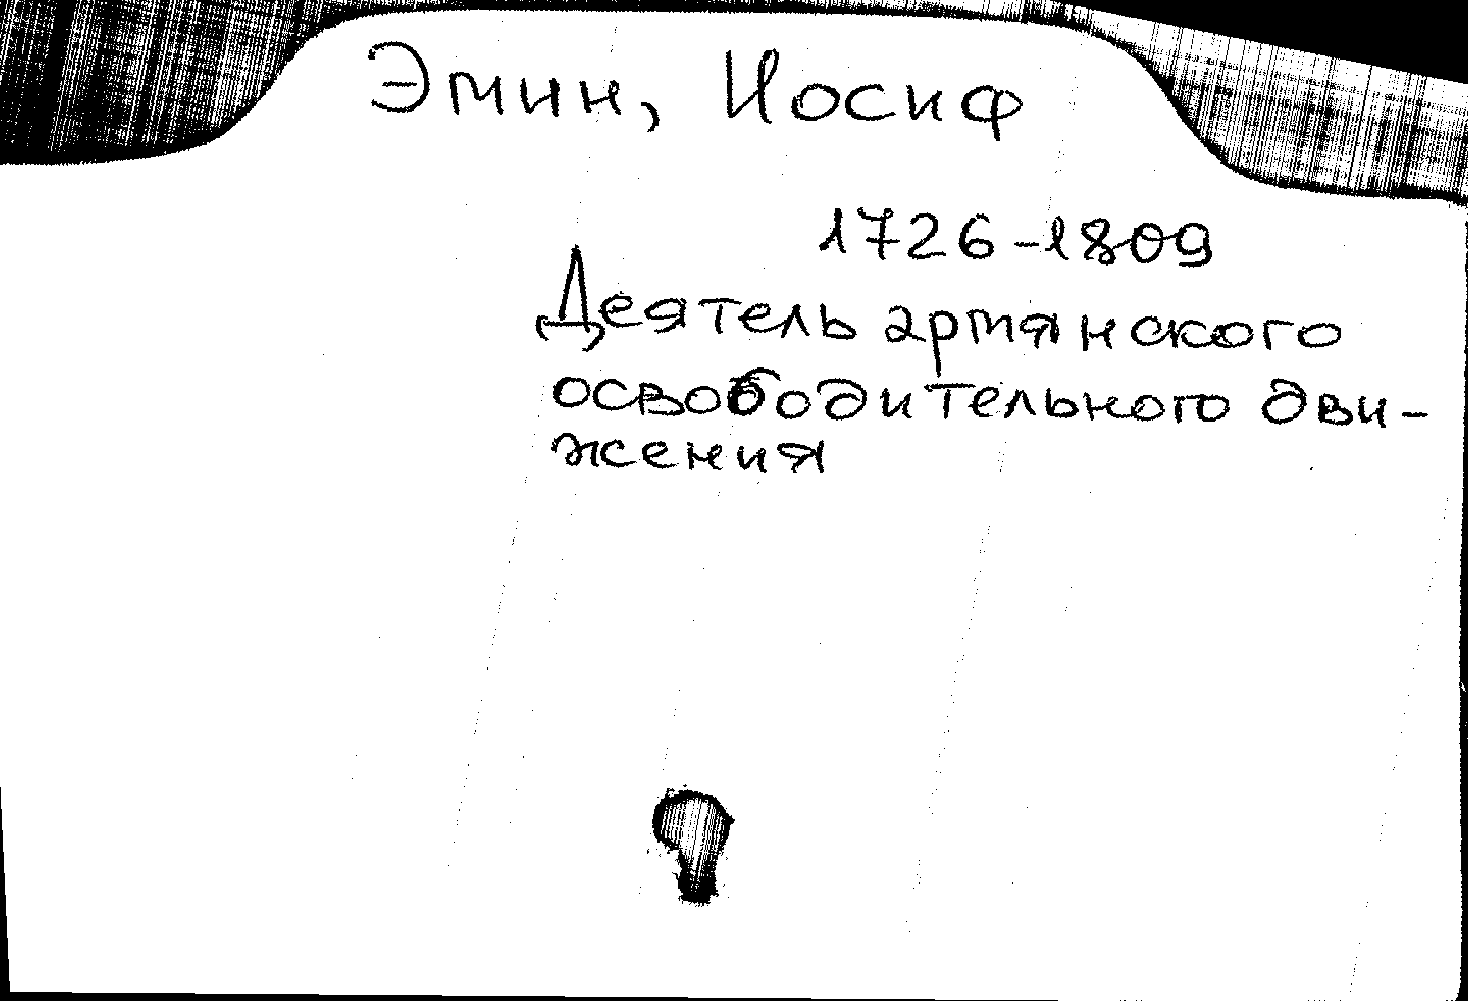 Эмин, Иосиф
1726-1809
Деятель армянского
освободительного дви-
жения